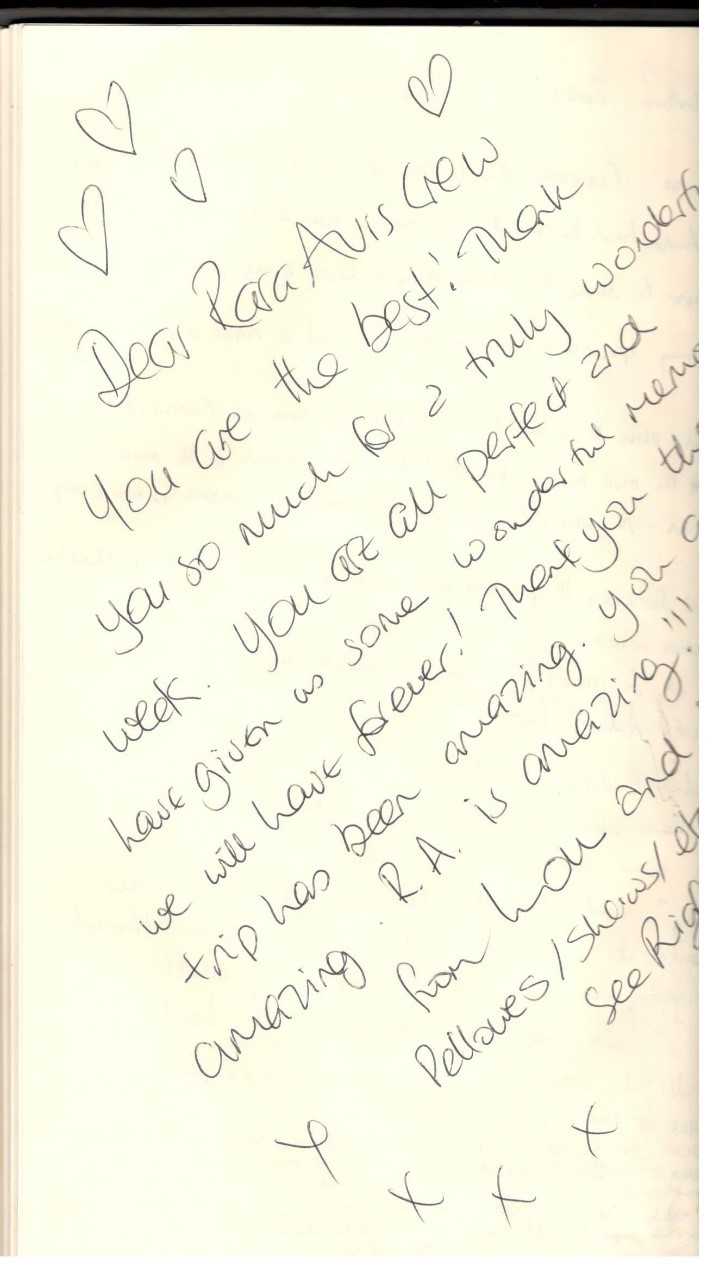 Dear Rara Avis Crew
You are the best! Thank
you so much for a truly wonderf
week. You are all perfect and
have given us some wonderful memo
we will have forever! Thank you th
trip has been amazing. You a
amazing. R.A. is amazing!!!
from Lou and
Pellowes/Shaws/et
See Rig
x
x x x